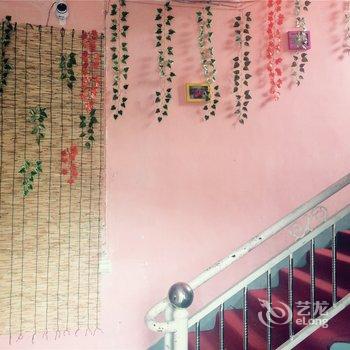 艺龙
eLong